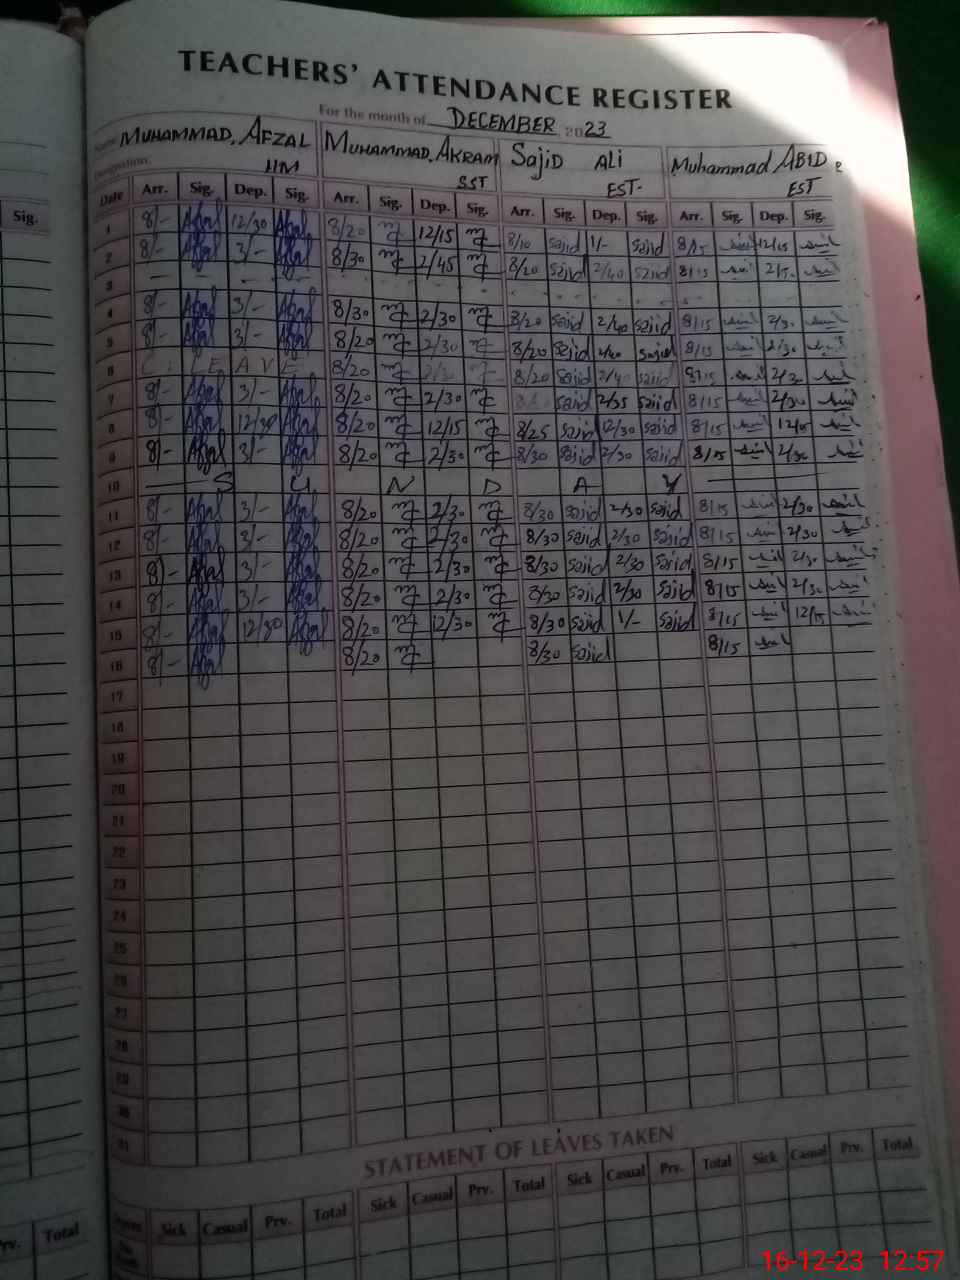 TEACHERS' ATTENDANCE REGISTER
For the month of DECEMBER 2023
Name MUHAMMAD. AFZAL MUHAMMAD. AKRAM SAJID ALI Muhammad ABID
Designation. HM SST EST. EST
Sig. Date Arr. Sig. Dep. Sig. Arr. Sig. Dep. Sig. Arr. Sig. Dep. Sig. Arr. Sig. Dep. Sig.
1 8/- Afzal 12/30 Afzal 8/20 12/15 8/10 Sajid 1/- Sajid 8/15 12/15
2 8/- Afzal 3/- Afzal 8/30 2/45 8/20 Sajid 2/40 Sajid 8/15
3
4 8/- Afzal 3/- Afzal 8/30 2/30 8/20 Sajid 2/40 Sajid 8/15 2/30
5 8/- Afzal 3/- Afzal 8/20 2/30 8/20 Sajid 2/40 Sajid 8/15 2/30
6 C. LEAVE 8/20 2/30 8/20 Sajid 2/40 Sajid 8/15 2/30
7 8/- Afzal 3/- Afzal 8/20 2/30 Sajid 2/35 Sajid 8/15 2/30
8 8/- Afzal 12/30 Afzal 8/20 12/15 8/25 Sajid 12/30 Sajid 8/15 12/15
9 8/- Afzal 3/- Afzal 8/20 2/30 8/30 Sajid 2/30 Sajid 8/15 2/30
10 S U N D A Y
11 8/- Afzal 3/- Afzal 8/20 2/30 8/30 Sajid 2/30 Sajid 8/15 2/30
12 8/- Afzal 3/- Afzal 8/20 2/30 8/30 Sajid 2/30 Sajid 8/15 2/30
13 8/- Afzal 3/- Afzal 8/20 2/30 8/30 Sajid 2/30 Sajid 8/15 2/30
14 8/- Afzal 3/- Afzal 8/20 2/30 8/30 Sajid 2/30 Sajid 8/15 2/30
15 8/- Afzal 12/30 Afzal 8/20 12/30 8/30 Sajid 1/- Sajid 8/15 12/15
16 8/- Afzal 8/20 8/30 Sajid 8/15
17
18
19
20
21
22
23
24
25
26
27
28
29
30
31
STATEMENT OF LEAVES TAKEN
Prv. Total Sick Casual Prv. Total Sick Casual Prv. Total Sick Casual Prv. Total Sick Casual Prv. Total
16-12-23 12:57